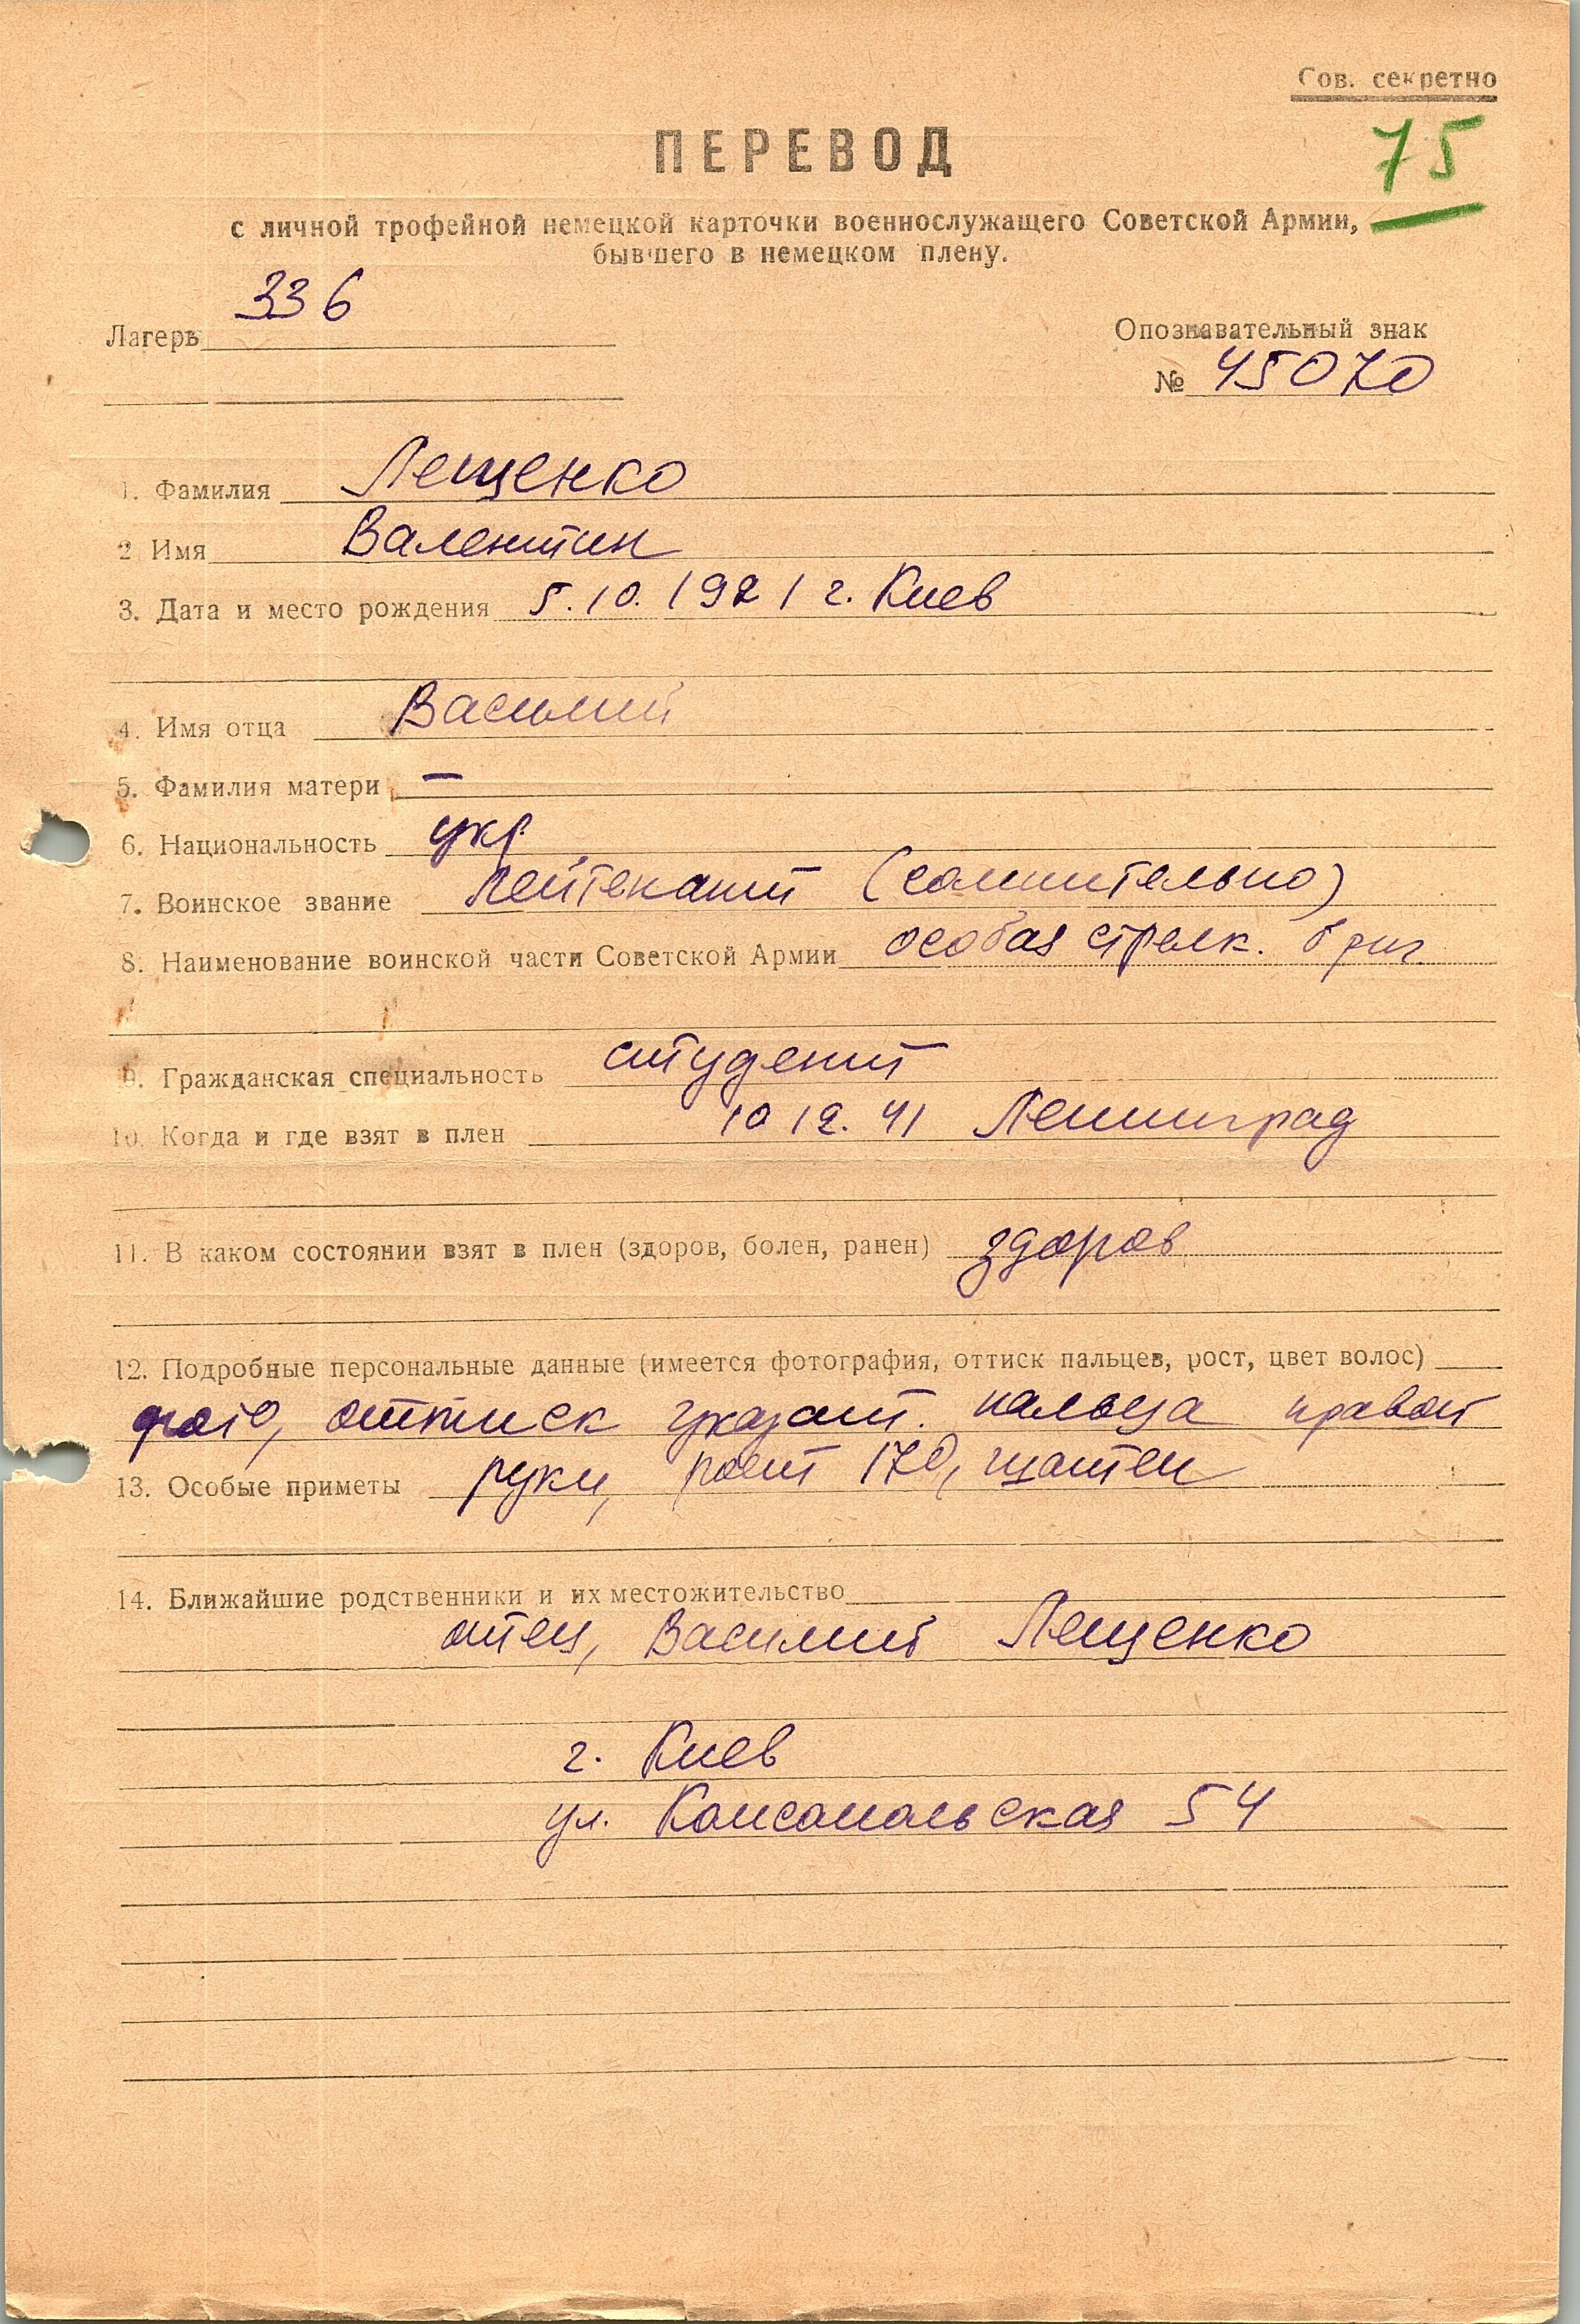 Сов. секретно
75
ПЕРЕВОД
с личной трофейной немецкой карточки военнослужащего Советской Армии,
бывшего в немецком плену.
Лагерь 336
Опознавательный знак
№ 45070
1. Фамилия Лещенко
2 Имя Валентин
3. Дата и место рождения 5.10.1921 г. Киев
4. Имя отца Василий
5. Фамилия матери —
6. Национальность укр.
7. Воинское звание лейтенант (сомнительно)
8. Наименование воинской части Советской Армии особая стрелк. бриг.
9. Гражданская специальность студент
10. Когда и где взят в плен 10 12. 41 Ленинград
11. В каком состоянии взят в плен (здоров, болен, ранен) здоров
12. Подробные персональные данные (имеется фотография, оттиск пальцев, рост, цвет волос)
фото, оттиск указат. пальца правой
13. Особые приметы руки, рост 170, шатен
14. Ближайшие родственники и их местожительство
отец, Василий Лещенко
г. Киев
ул. Комсомольская 54